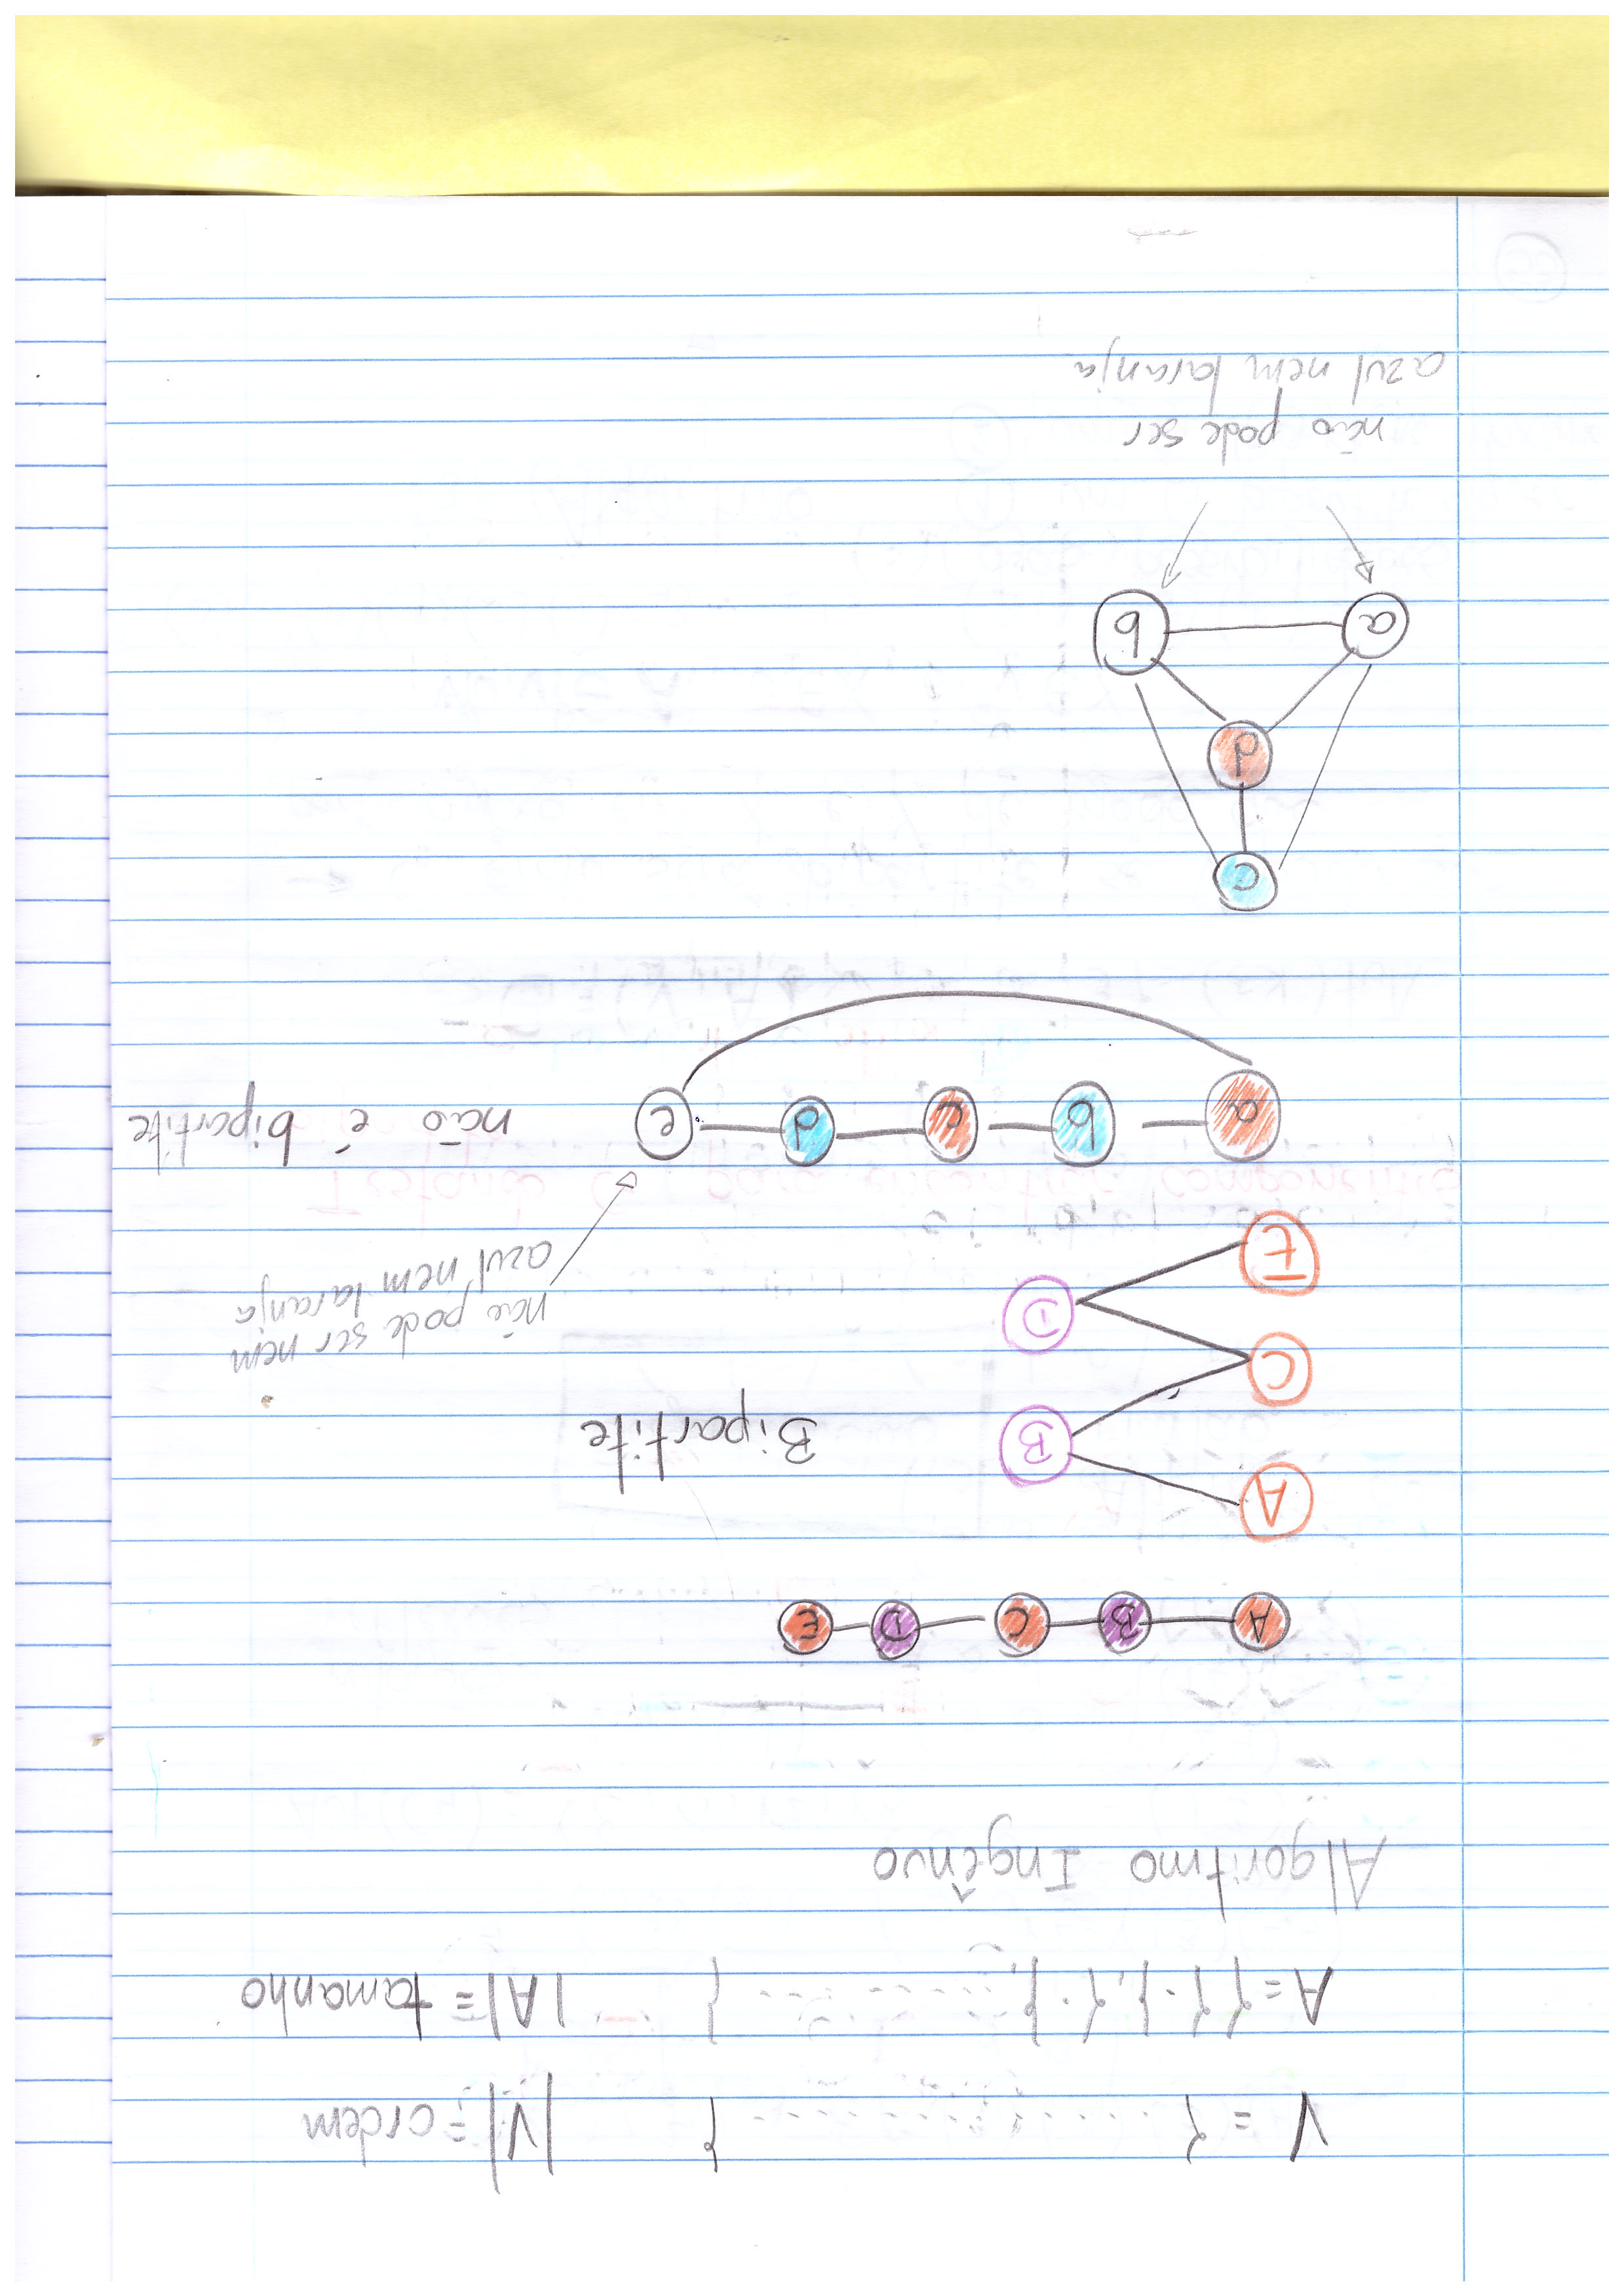 V = { . . . . . . . . . . . . . . . } |V| = ordem
A = { { . } , { . } , . . . . . . . . . . } |A| = tamanho
Algoritmo Ingênuo
A B C D E
A
B
Bipartite
C
D
E
não pode ser nem
azul nem laranja
a b c d e não é bipartite
c
d
a b
não pode ser
azul nem laranja